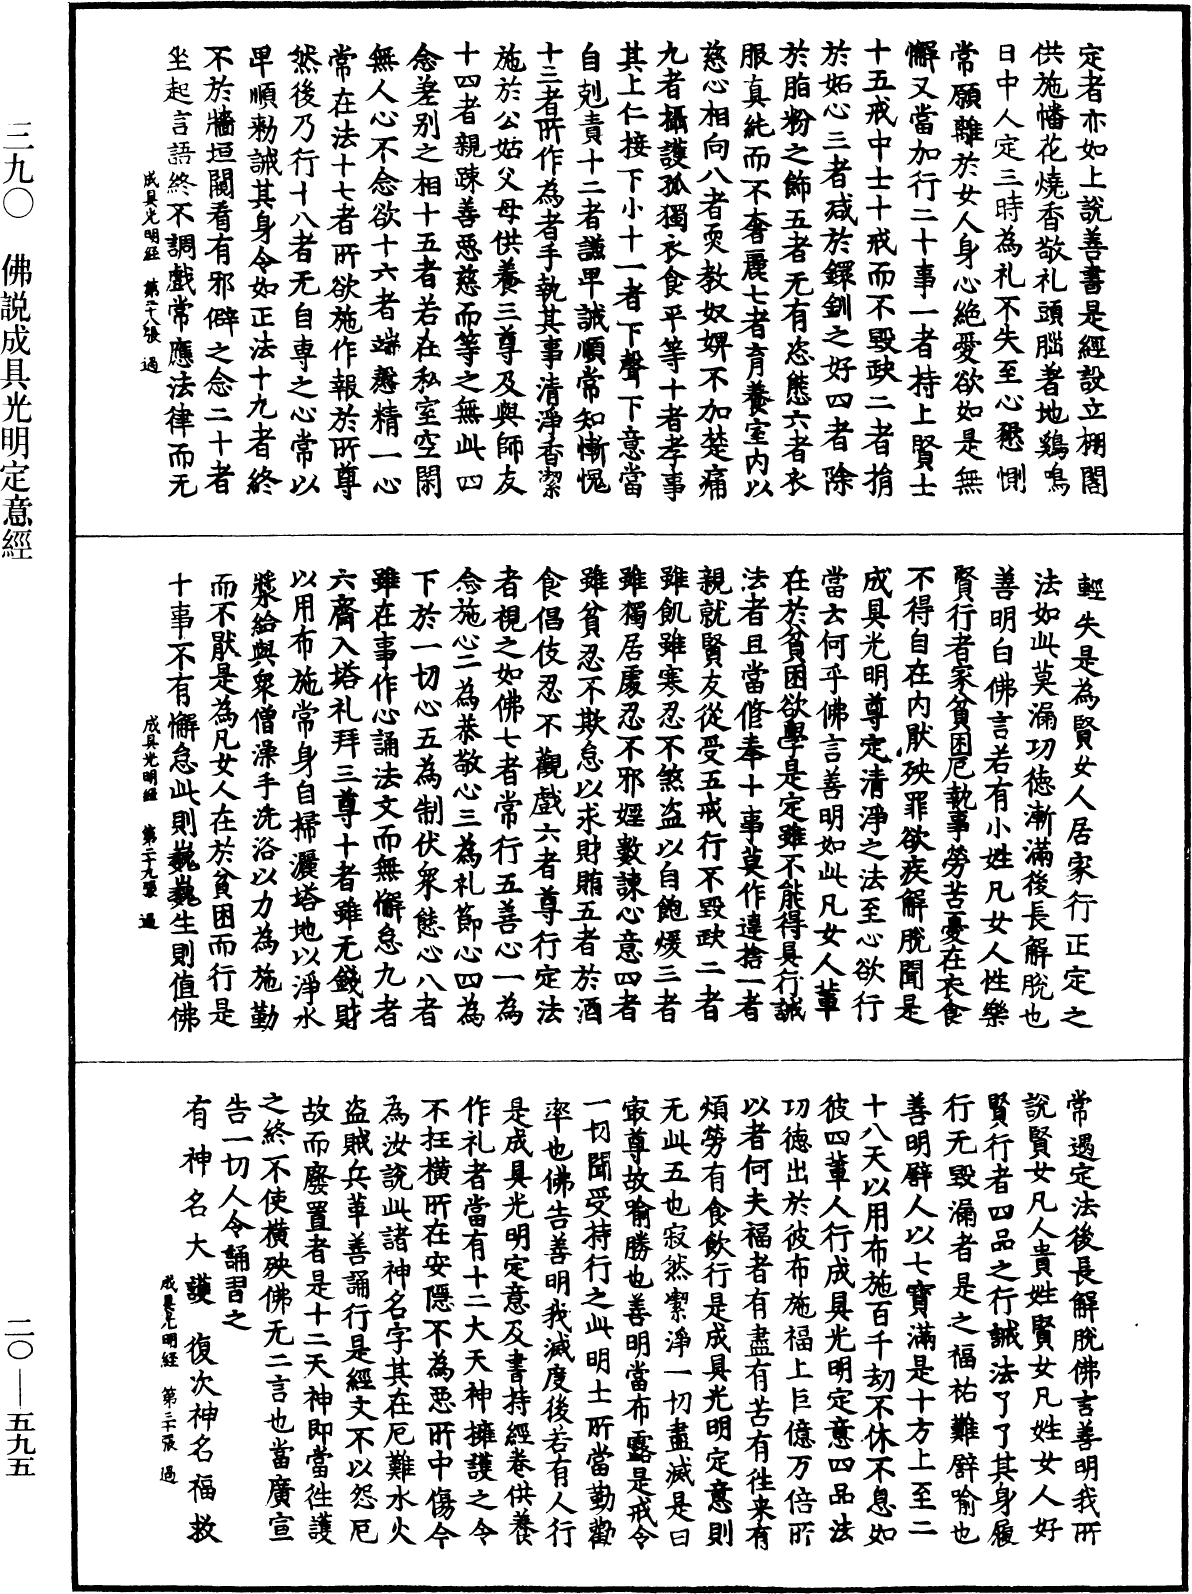 三九〇　佛説成具光明定意經
二〇——五九五
定者亦如上說善書是經設立棚閣
供施幡花燒香敬礼頭腦著地鷄鳴
日中人定三時為礼不失至心懇惻
常願離於女人身心絶愛欲如是無
懈又當加行二十事一者持上賢士
十五戒中士十戒而不毀䟽二者捐
於妬心三者減於鐶釧之好四者除
於脂粉之飾五者无有恣態六者衣
服真純而不奢麗七者育養室内以
慈心相向八者耎教奴婢不加楚痛
九者攝護孤獨衣食平等十者孝事
其上仁接下小十一者下聲下意當
自剋責十二者謙卑誠順常知慚愧
十三者所作為者手執其事清淨香潔
施於公姑父母供養三尊及與師友
十四者親踈善惡慈而等之無此四
念差別之相十五者若在私室空閑
無人心不念欲十六者端慤精一心
常在法十七者所欲施作報於所尊
然後乃行十八者无自専之心常以
卑順勑誡其身令如正法十九者終
不於牆垣闚看有邪僻之念二十者
坐起言語終不調戲常應法律而无
成具光明經　第二十八張　過
輕失是為賢女人居家行正定之
法如此莫漏功德漸滿後長解脫也
善明白佛言若有小姓凡女人性樂
賢行者家貧困厄執事勞苦憂在衣食
不得自在内厭殃罪欲疾解脫聞是
成具光明尊定清淨之法至心欲行
當云何乎佛言善明如此凡女人輩
在於貧困欲學是定雖不能得具行誡
法者且當修奉十事莫作違捨一者
親就賢友從受五戒行不毀䟽二者
雖飢雖寒忍不煞盗以自飽煖三者
雖獨居處忍不邪婬數諫心意四者
雖貧忍不欺怠以求財賄五者於酒
食倡伎忍不觀戲六者尊行定法
者視之如佛七者常行五善心一為
念施心二為恭敬心三為礼節心四為
下於一切心五為制伏衆態心八者
雖在事作心誦法文而無懈怠九者
六齋入塔礼拜三尊十者雖无錢財
以用布施常身自掃灑塔地以淨水
漿給與衆僧澡手洗浴以力為施勤
而不厭是為凡女人在於貧困而行是
十事不有懈怠此則巍巍生則值佛
成具光明經　第二十九張　過
常遇定法後長解脫佛言善明我所
說賢女凡人貴姓賢女凡姓女人好
賢行者四品之行誡法了了其身履
行无毀漏者是之福祐難譬喻也
善明譬人以七寶滿是十方上至二
十八天以用布施百千劫不休不息如
彼四輩人行成具光明定意四品法
功德出於彼布施福上巨億万倍所
以者何夫福者有盡有苦有往来有
煩勞有食飲行是成具光明定意則
无此五也寂然潔淨一切盡滅是曰
寂尊故喻勝也善明當布露是戒令
一切聞受持行之此明士所當勤勸
率也佛告善明我滅度後若有人行
是成具光明定意及書持經卷供養
作礼者當有十二大天神擁護之令
不抂橫所在安隱不為惡所中傷今
為汝說此諸神名字其在厄難水火
盗賊兵革善誦行是經文不以怨厄
故而廢置者是十二天神即當往護
之終不使橫殃佛无二言也當廣宣
告一切人令誦習之
有神名大護　復次神名福救
成具光明經　第三十張　過